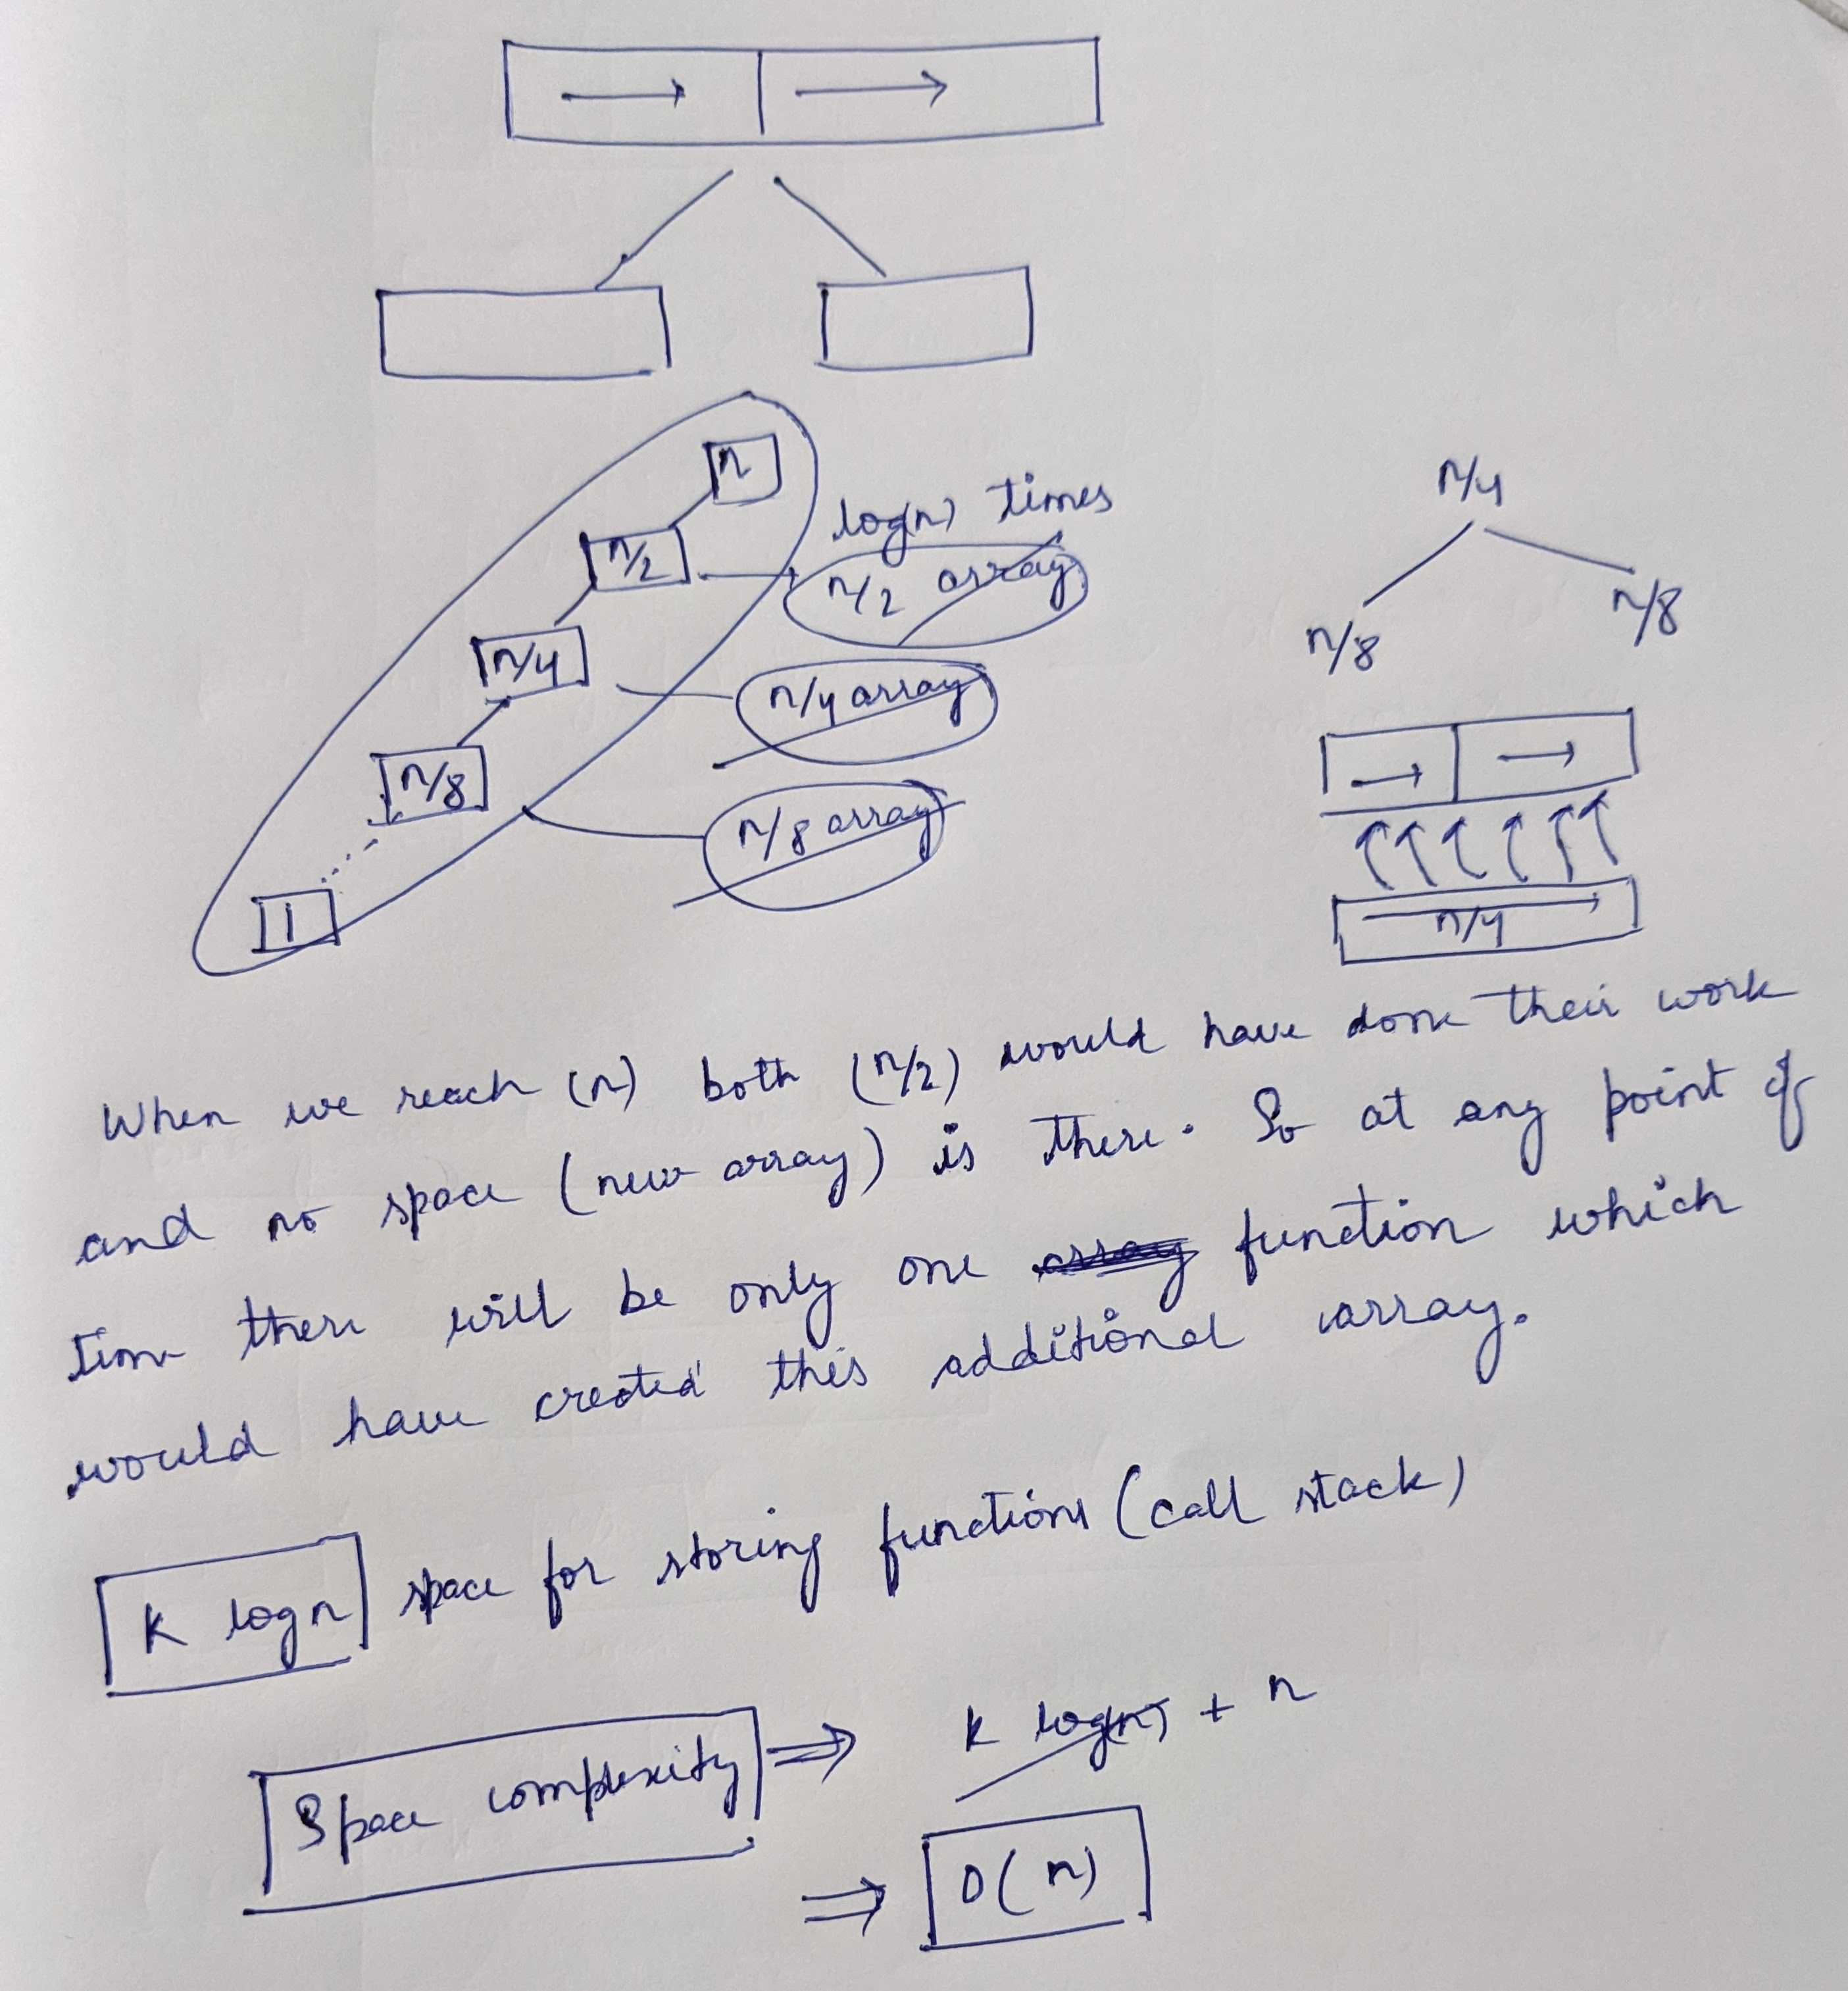 n
log(n) times
n/2
n/2 array
n/4
n/4 array
n/8
n/8 array
1
n/4
n/8
n/8
n/4
When we reach (n) both (n/2) would have done their work
and no space (new array) is there. So at any point of
time there will be only one array function which
would have created this additional array.
K log n space for storing functions (call stack)
Space complexity ⇒ K log(n) + n
⇒ O(n)